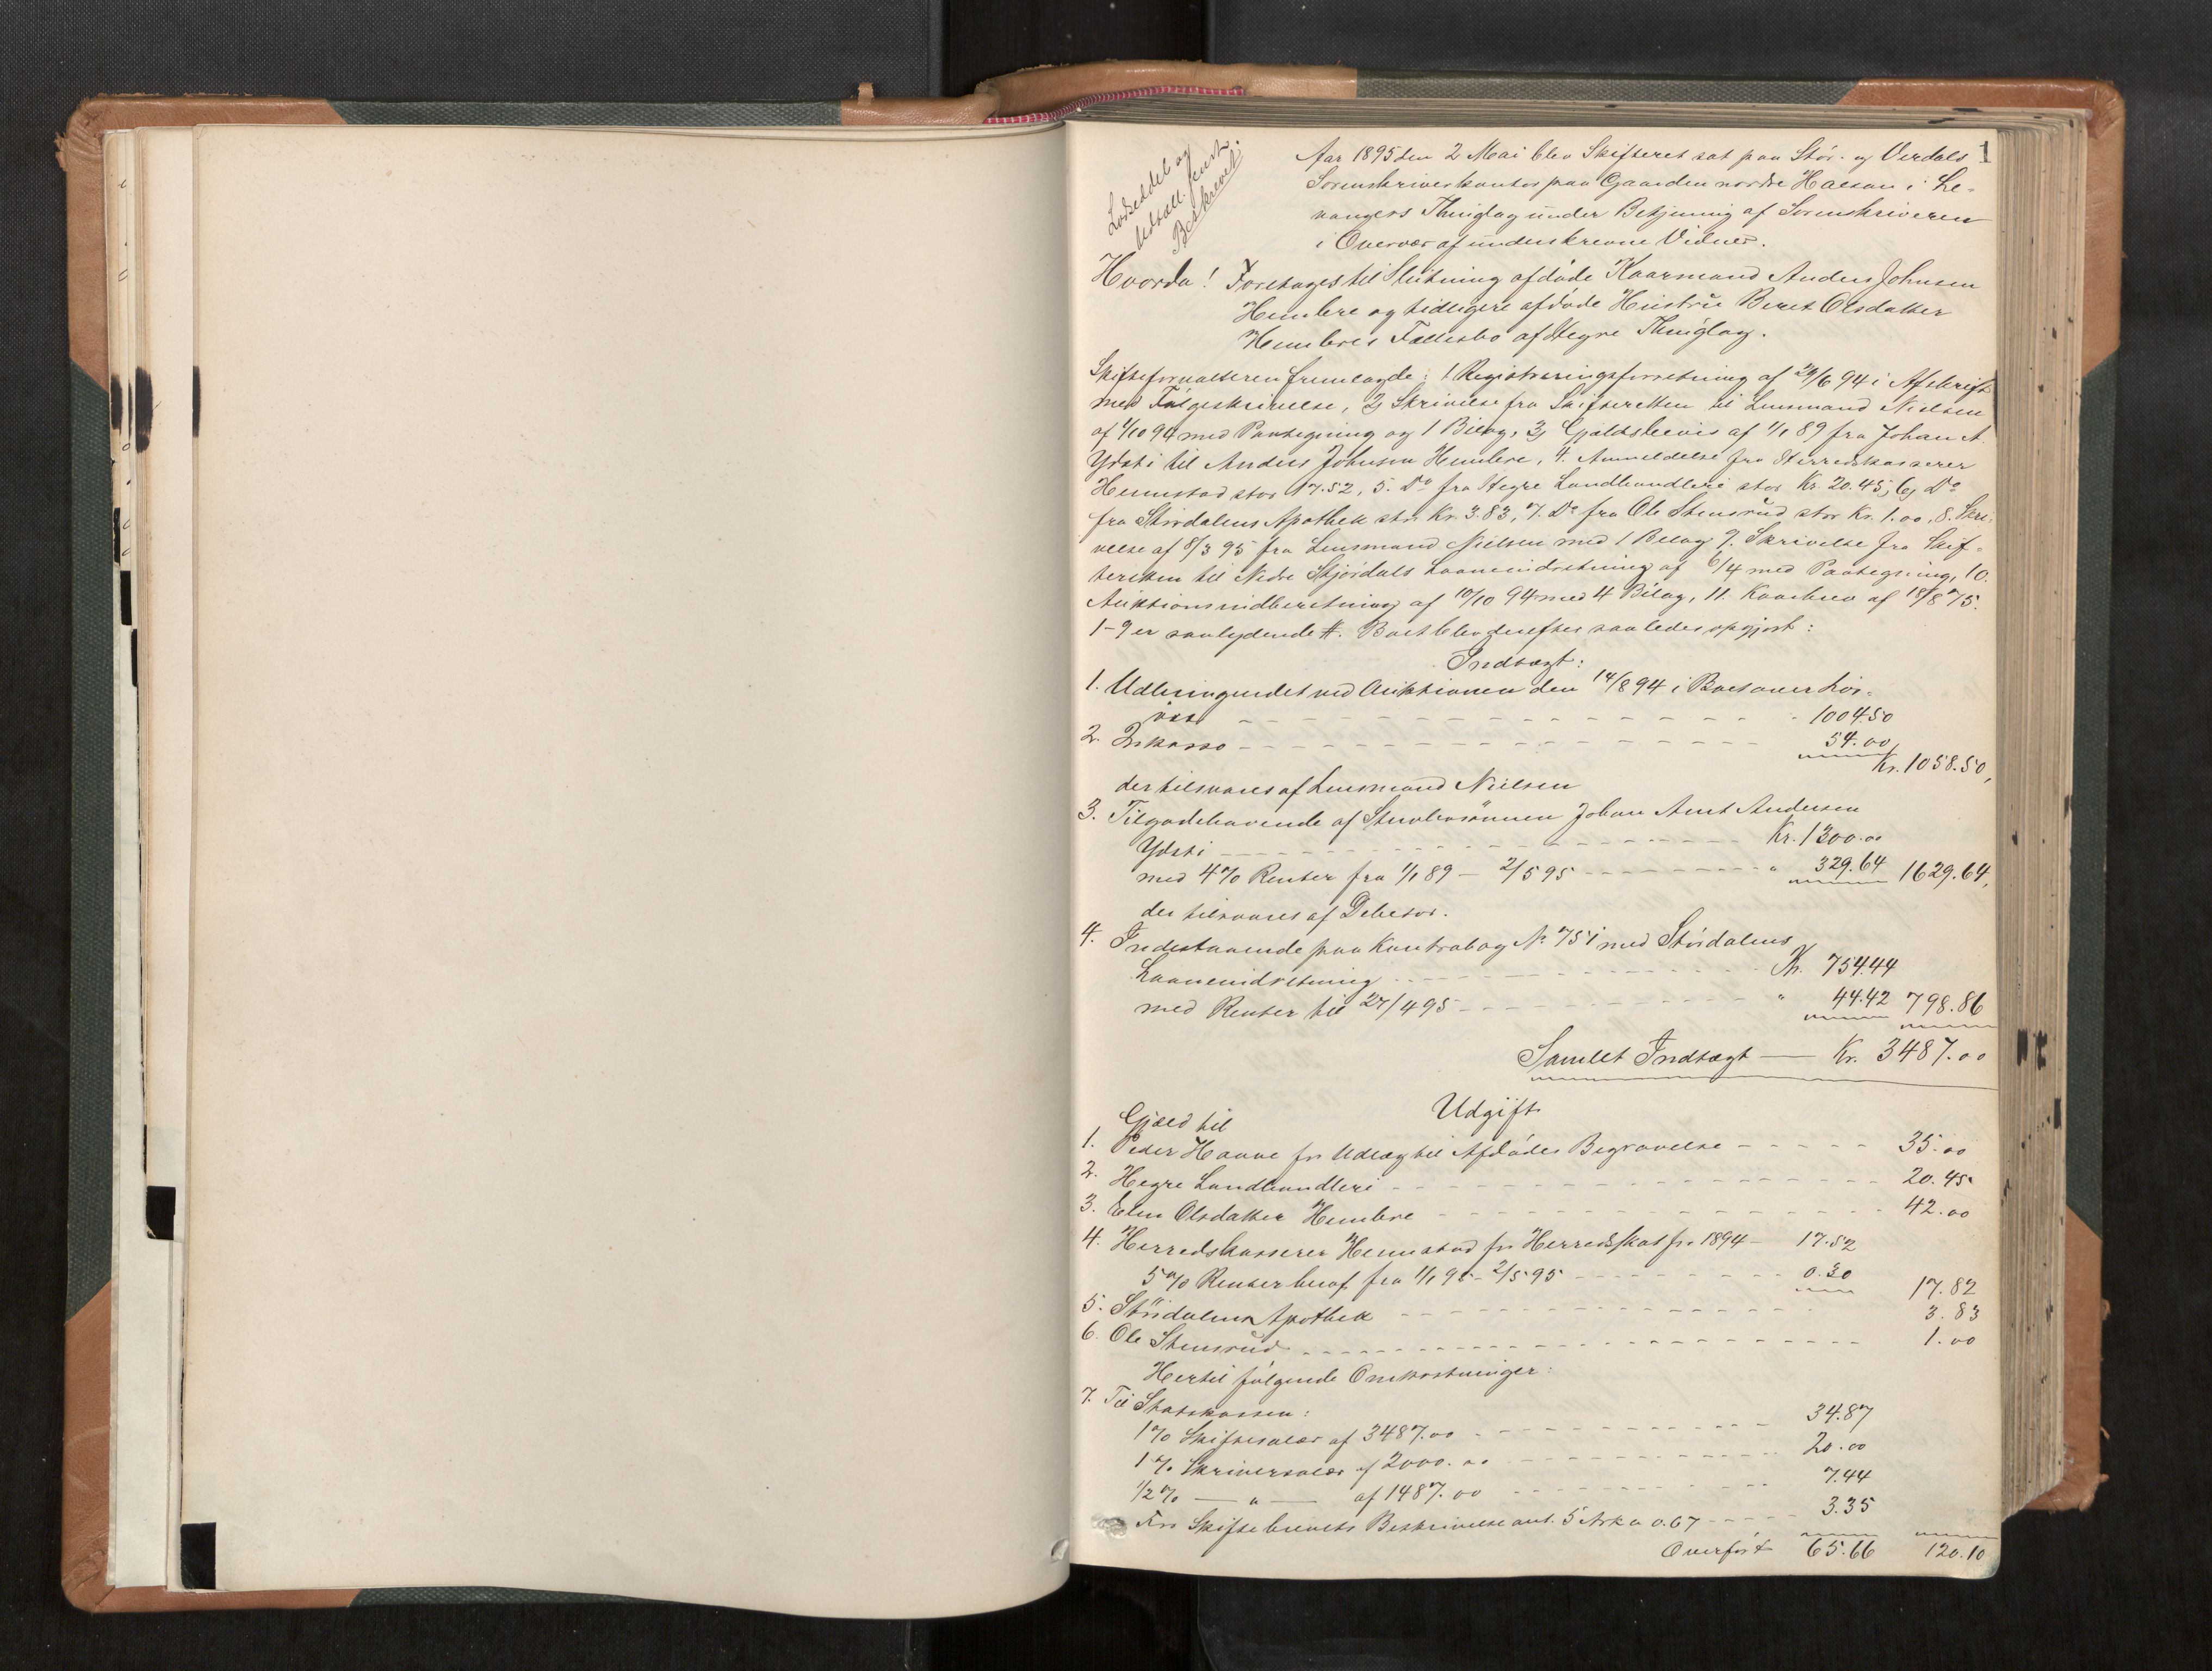 1
Lodseddel og
Udtall. ...
Beskrevet
Aar 1895 den 2 Mai blev Skifteret sat paa Stør- og Verdals
Sorenskriverkontor paa Gaarden nordre Halsan i Le-
vangers Thinglag under Betjening af Sorenskriveren
i Overvær af underskrevne Vidner.
Hvorda! Foretages til Slutning afdøde Kaarmand Anders Johnsen
Hembre og tidligere afdøde Hustru Beret Olsdatter
Hembres Fællesbo af Hegre Thinglag.
Skifteforvalteren fremlagde: 1 Registreringsforretning af 29/6 94 i Afskrift
med Følgeskrivelse, 2, Skrivelse fra Skifteretten til Lensmand Nielsen
af 4/10 94 med Paategning og 1 Bilag, 3, Gjældsbevis af 1/1 89 fra Johan A.
Ydsti til Anders Johnsen Hembre, 4. Anmeldelse fra Herredskasserer
Hemstad stor 17.52, 5. Do fra Hegre Landhandleri stor Kr. 20.45, 6, Do
fra Størdalens Apothek stor Kr. 3.83, 7. Do fra Ole Stensrud stor Kr. 1.00, 8. Skri-
velse af 8/3 95 fra Lensmand Nielsen med 1 Bilag 9. Skrivelse fra Skif-
teretten til Nedre Stjørdals Laaneindretning af 6/4 med Paategning, 10.
Auktionsindberetning af 10/10 94 med 4 Bilag, 11. Kaarbrev af 18/8 75.
1-9 er saalydende #. Boet blev derefter saaledes opgjort:
Indtægt:
1. Udbringendet ved Auktionen den 14/8 94 i Boets Løs-
øre - - - 1004.50
2. Inkasso - - - 54.00
Kr. 1058.50,
der tilsvares af Lensmand Nielsen
3. Tilgodehavende af Stervbosønnen Johan Arnt Andersen
Ydsti - - - Kr. 1300.00
med 4% Renter fra 1/1 89 - 2/5 95 - - - " 329.64 1629.64,
der tilsvares af Debitor.
4. Indestaaende paa Kontrabog No 751 med Stördalens
Laaneindretning - - - Kr. 754.44
med Renter til 27/4 95 - - - " 44.42 798.86
Samlet Indtægt — Kr. 3487.00
Udgift
Gjæld til
1. Peder Havne for Udlæg til Afdødes Begravelse - - - 35.00
2. Hegre Landhandleri - - - 20.45
3. Elen Olsdatter Hembre - - - 42.00
4. Herredskasserer Hemstad for Herredsskat for 1894 - 17.52
5% Renter heraf fra 1/1 95 - 2/5 95 - - - 0.30 17.82
5. Stördalens Apothek - - - 3.83
6. Ole Stensrud - - - 1.00
Hertil følgende Omkostninger:
7. Til Statskassen:
1% Skiftesalær af 3487.00 - - - 34.87
1% Skriversalær af 2000.00 - - - 20.00
1/2% — " — af 1487.00 - - - 7.44
For Skiftebrevets Beskrivelse ant. 5 Ark a 0.67 - - - 3.35
Overført 65.66 120.10